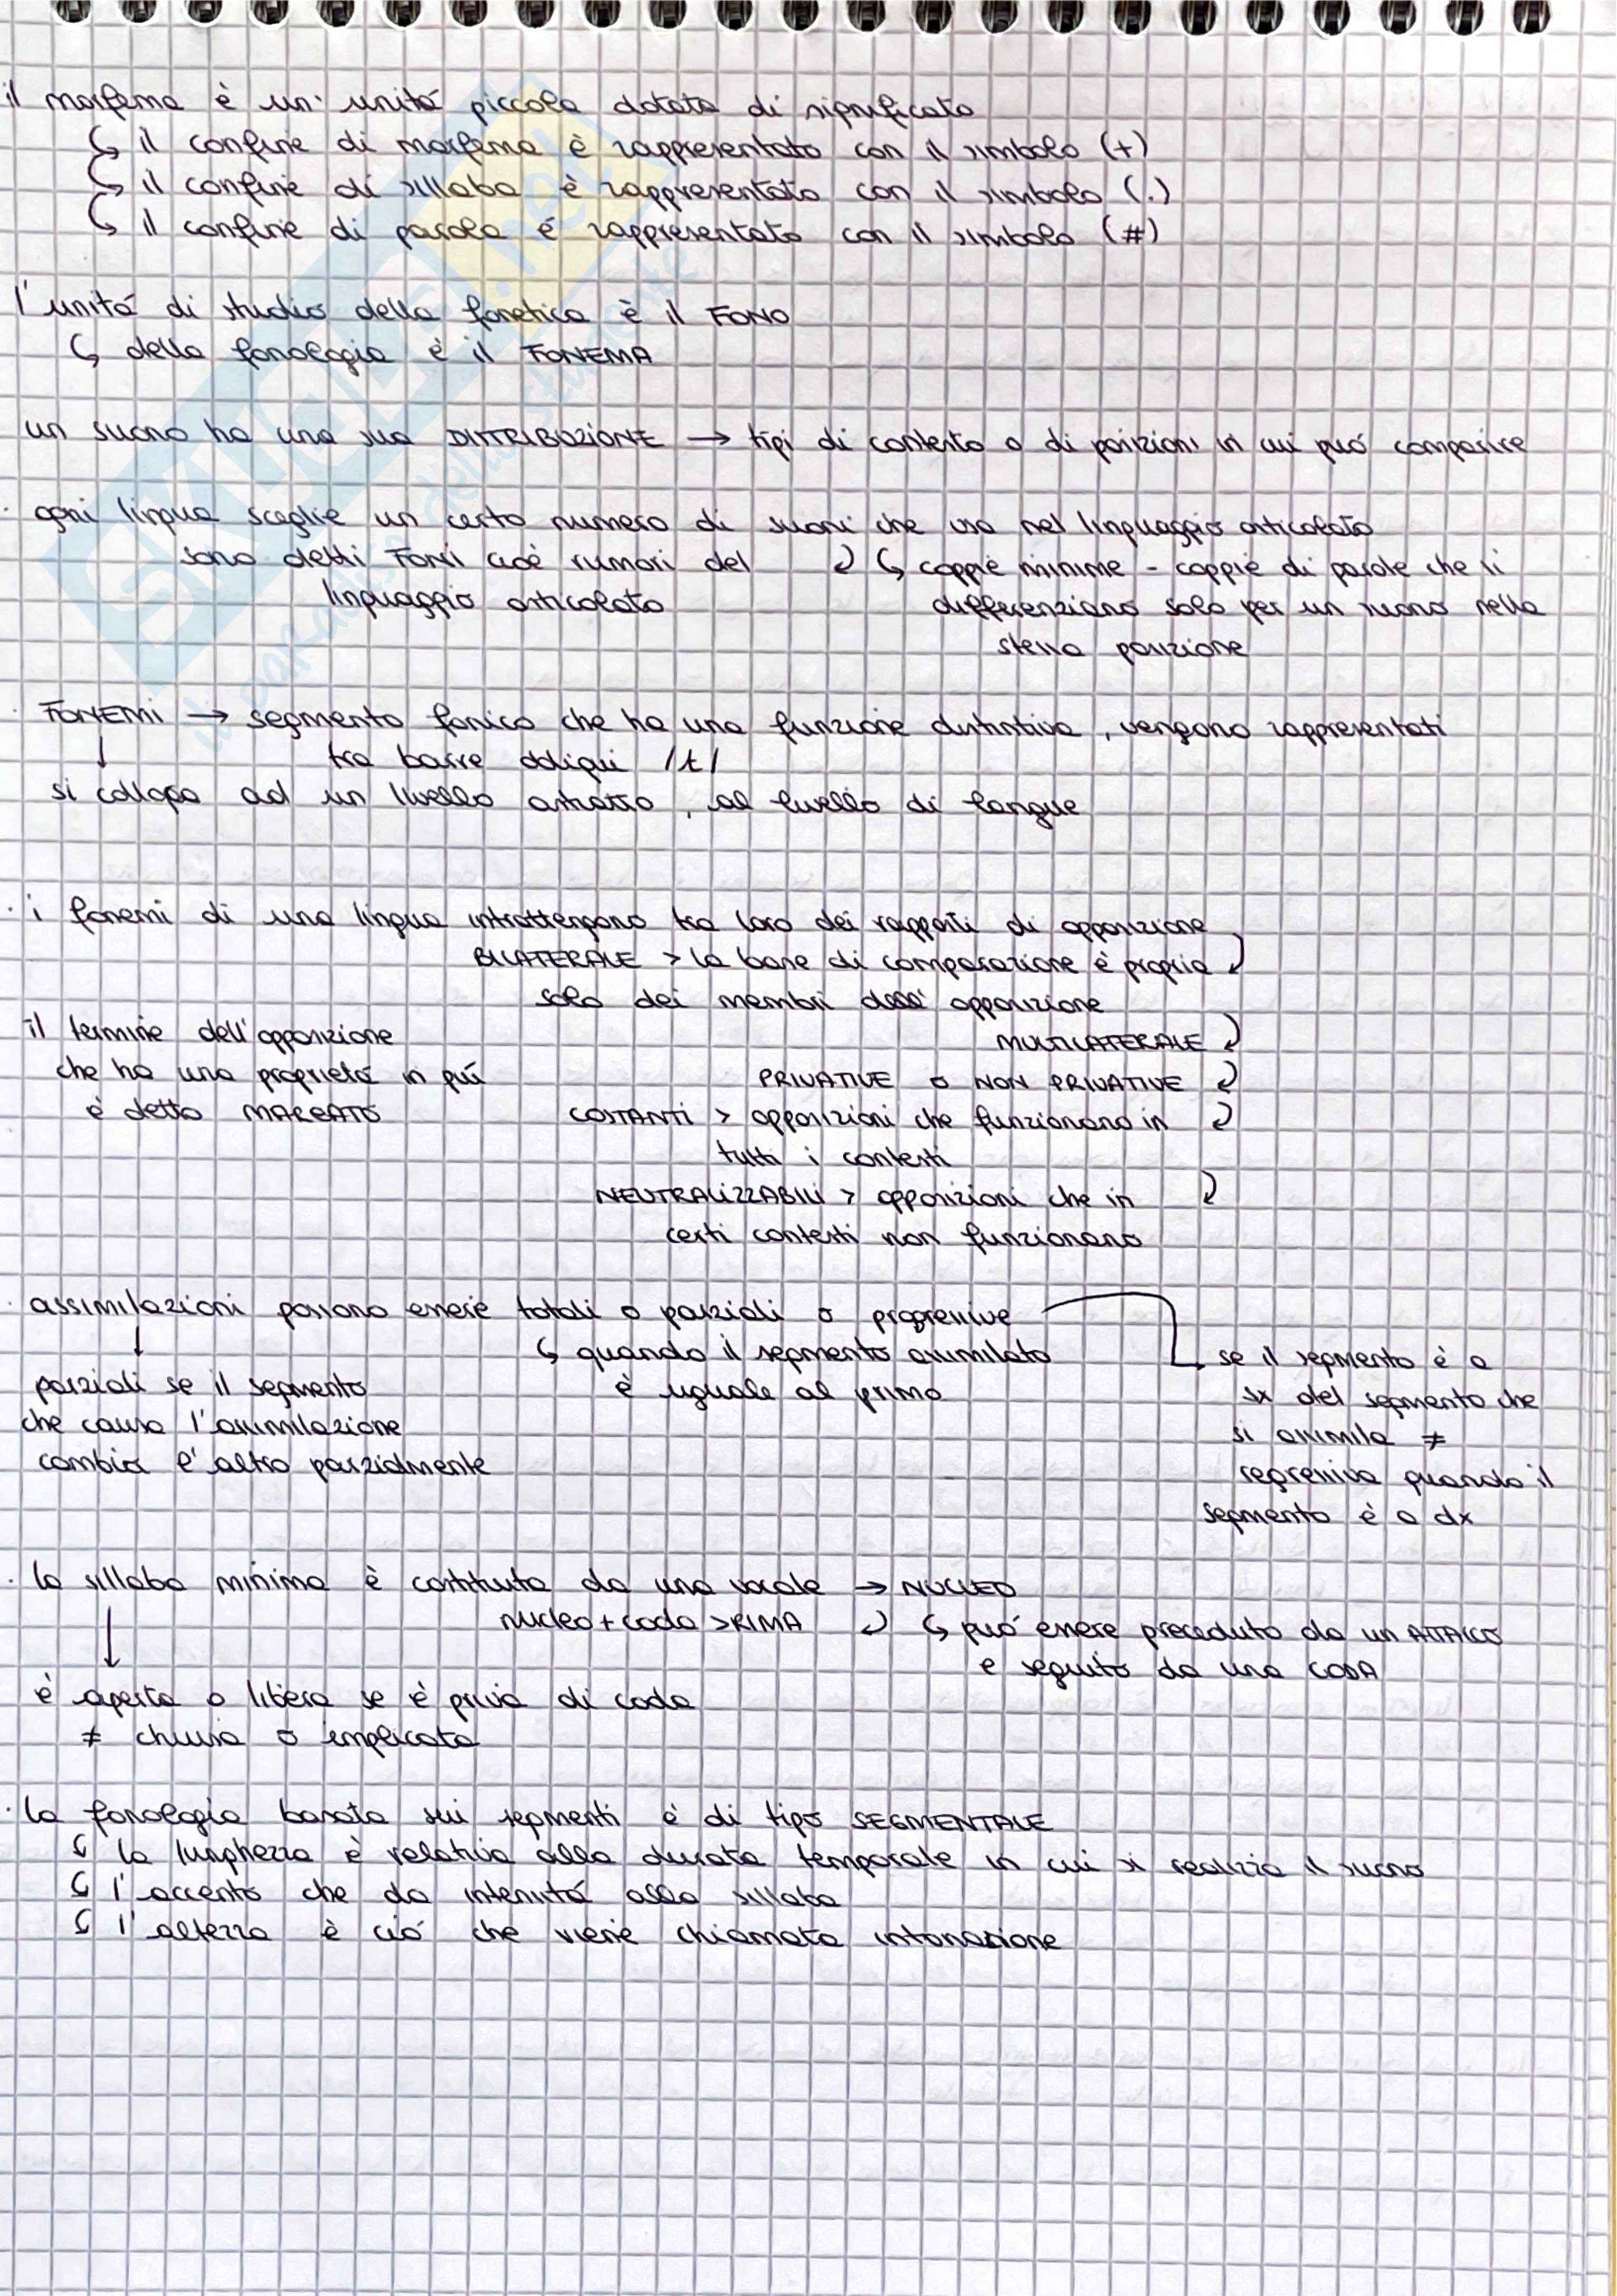 il morfema è un' unitá piccola dotata di significato
↳ il confine di morfema è rappresentato con il simbolo (+)
↳ il confine di sillaba è rappresentato con il simbolo (.)
↳ il confine di parola é rappresentato con il simbolo (#)
l'unitá di studio della fonetica è il FONO
↳ della fonologia é il FONEMA
un suono ha una sua DISTRIBUZIONE → tipi di contesto o di posizioni in cui puó comparire
· ogni lingua sceglie un certo numero di suoni che usa nel linguaggio articolato
sono detti FONI cioé rumori del
linguaggio articolato
↳ coppie minime - coppie di parole che si
differenziano solo per un suono nella
stessa posizione
· FONEMI → segmento fonico che ha una funzione distintiva, vengono rappresentati
tra barre obliqui /t/
↓
si colloga ad un livello astratto, al livello di langue
· i fonemi di una lingua intrattengono tra loro dei rapporti di opposizione
BILATERALE > la base di comparazione é propria
solo dei membri dell' opposizione
il termine dell'opposizione
che ha una proprietá in piú
é detto MARCATO
MULTILATERALE
PRIVATIVE o NON PRIVATIVE
COSTANTI > opposizioni che funzionano in
tutti i contesti
NEUTRALIZZABILI > opposizioni che in
certi contesti non funzionano
· assimilazioni possono essere totali o parziali o progressive
↳ quando il segmento assimilato
è uguale al primo
parziali se il segmento
che causa l'assimilazione
cambia l'altro parzialmente
se il segmento é a
sx del segmento che
si assimila ≠
regressiva quando il
segmento é a dx
· la sillaba minima è costituita da una vocale → NUCLEO
nucleo + coda > RIMA
↳ puó essere preceduto da un ATTACCO
e seguito da una CODA
é aperta o libera se é priva di coda
≠ chiusa o implicata
· la fonologia basata sui segmenti é di tipo SEGMENTALE
↳ la lunghezza è relativa alla durata temporale in cui si realizza il suono
↳ l'accento che da intensitá alla sillaba
↳ l'altezza è ció che viene chiamata intonazione
SKUOLA.net
il paradiso dello studente